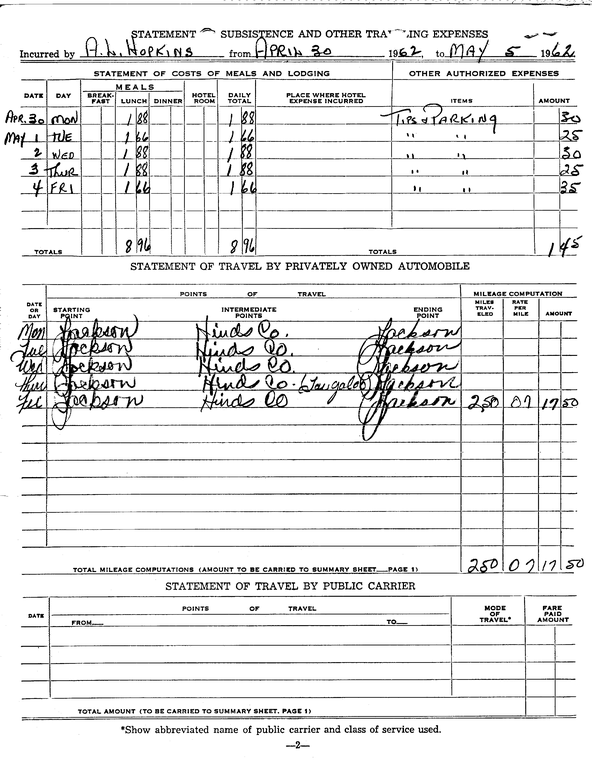 STATEMENT SUBSISTENCE AND OTHER TRA ING EXPENSES
Incurred by A.L. HOPKINS from APRIL 30 1962, to MAY 5 1962
STATEMENT OF COSTS OF MEALS AND LODGING OTHER AUTHORIZED EXPENSES
DATE DAY MEALS BREAK-FAST LUNCH DINNER HOTEL ROOM DAILY TOTAL PLACE WHERE HOTEL EXPENSE INCURRED ITEMS AMOUNT
APR. 30 MON 1 88 1 88 TIPS & PARKING 30
MAY 1 TUE 1 66 1 66 " " 25
2 WED 1 88 1 88 " " 30
3 THUR 1 88 1 88 " " 25
4 FRI 1 66 1 66 " " 35
TOTALS 8 96 8 96 TOTALS 1 45
STATEMENT OF TRAVEL BY PRIVATELY OWNED AUTOMOBILE
POINTS OF TRAVEL MILEAGE COMPUTATION
DATE OR DAY STARTING POINT INTERMEDIATE POINTS ENDING POINT MILES TRAV-ELED RATE PER MILE AMOUNT
Mon Jackson Hinds Co. Jackson
Tue Jackson Hinds Co. Jackson
Wed Jackson Hinds Co. Jackson
Thur Jackson Hinds Co. (Tougaloo) Jackson
Fri Jackson Hinds Co Jackson 250 07 17 50
TOTAL MILEAGE COMPUTATIONS (AMOUNT TO BE CARRIED TO SUMMARY SHEET PAGE 1) 250 07 17 50
STATEMENT OF TRAVEL BY PUBLIC CARRIER
DATE POINTS OF TRAVEL MODE OF TRAVEL* FARE PAID AMOUNT
FROM TO
TOTAL AMOUNT (TO BE CARRIED TO SUMMARY SHEET, PAGE 1)
*Show abbreviated name of public carrier and class of service used.
—2—